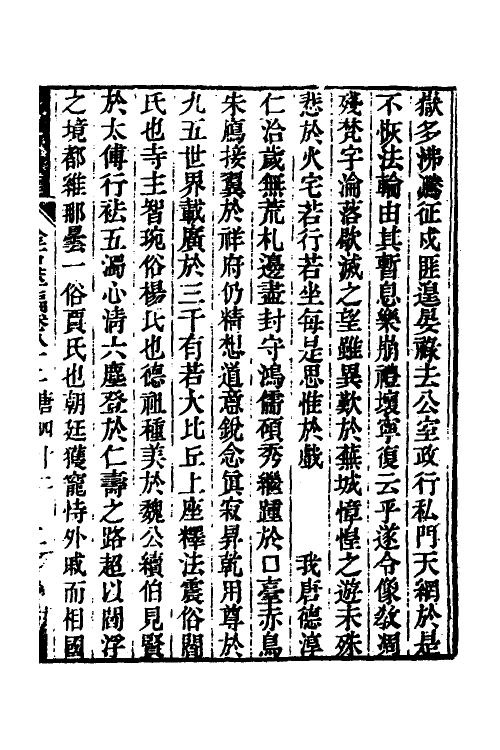 獄多沸騰征戍匪遑晏祿去公室政行私門天網於是
不恢法輪由其暫息樂崩禮壞寧復云乎遂令像教凋
殘梵字淪落歇滅之望雖異歎於蕪城惸惸之遊未殊
悲於火宅若行若坐每是思惟於戲　我唐德淳
仁洽歲無荒札邊盡封守鴻儒碩秀繼踵於口臺赤烏
朱鴈接翼於祥府仍精想道意銳念㝠寂昇乾用尊於
九五世界載廣於三千有若大比丘上座釋法震俗閻
氏也寺主智琬俗楊氏也德祖種美於魏公續伯見賢
於太傅行袪五濁心清六塵登於仁壽之路超以閻浮
之境都維那曇一俗賈氏也朝廷獲寵恃外戚而相國
金石萃編卷八十二唐四十二